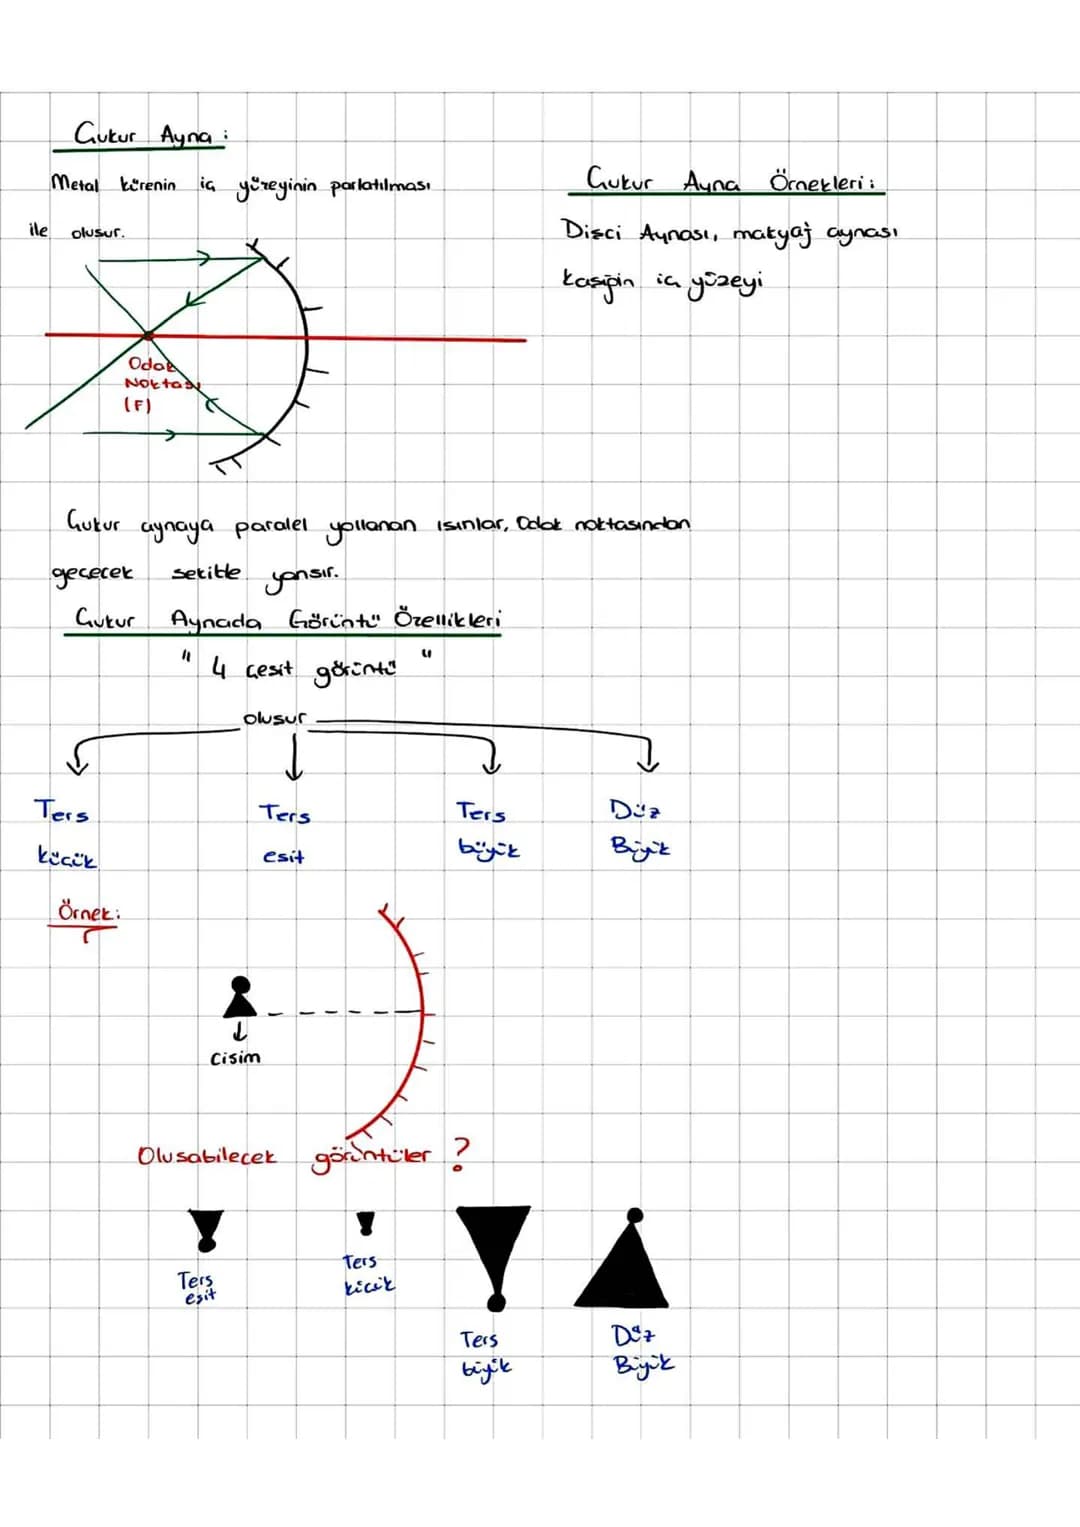 Çukur Ayna :
Metal kürenin iç yüzeyinin parlatılması
ile oluşur.
Çukur Ayna Örnekleri :
Dişci Aynası, makyaj aynası
kaşığın iç yüzeyi
Odak
Noktası
(F)
Çukur aynaya paralel yollanan ışınlar, Odak noktasından
geçecek şekilde yansır.
Çukur Aynada Görüntü Özellikleri
" 4 çeşit görüntü "
oluşur
Ters Ters Ters Düz
küçük eşit büyük Büyük
Örnek:
Cisim
Oluşabilecek görüntüler ?
Ters
eşit
Ters
küçük
Ters
büyük
Düz
Büyük